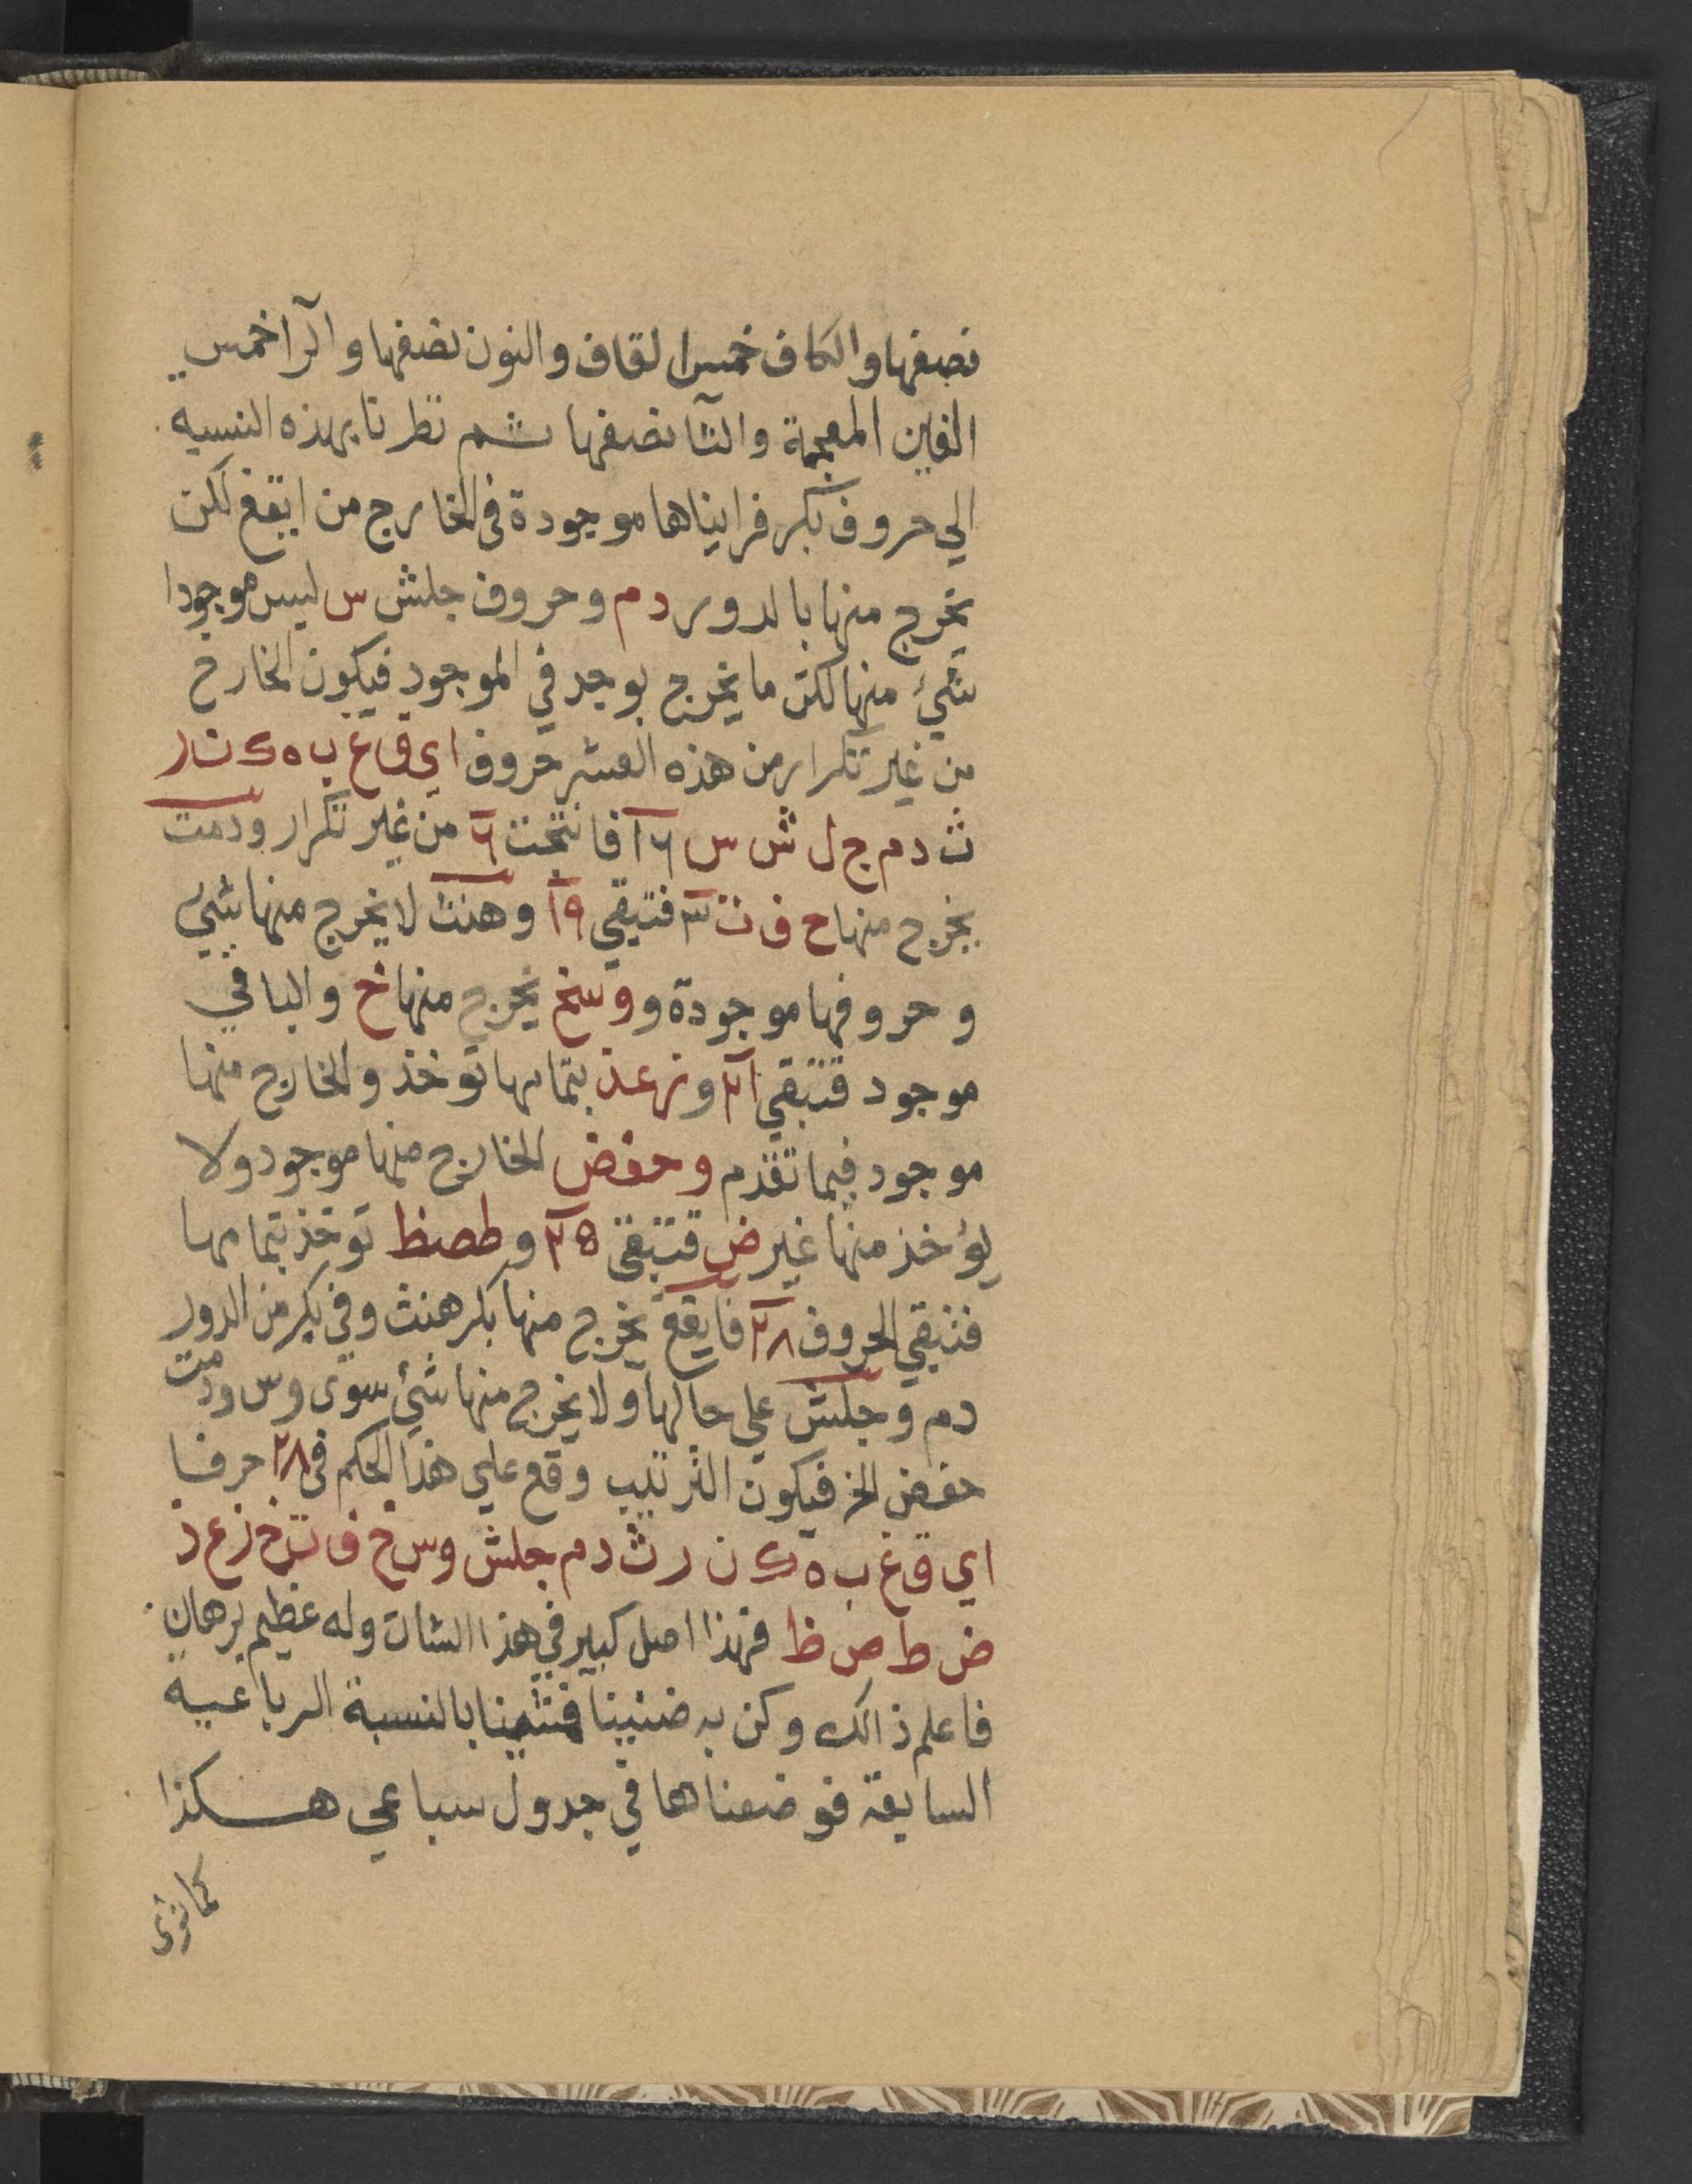 نصفها والكاف خمس القاف والنون نصفها والرا خمس
الغين المعجمة والثا نصفها ثم نظرنا بهذه النسبه
الي حروف بكر فرايناها موجودة في الخارج من ايقغ لكن
يخرج منها بالدور د م وحروف جلش س ليس موجودا
شيئ منها لكن ما يخرج يوجد في الموجود فيكون الخارج
من غير تكرار من هذه العشر حروف ا ي ق غ ب ه ك ن ر
ث د م ج ل ش س ١٦ فانتجت ٦ من غير تكرار ودمت
يخرج منها ح ف ت ٣ فتبقي ١٩ وهنث لا يخرج منها شيئ
وحروفها موجودة و وسخ يخرج منها خ والباقي
موجود فتبقي ٢١ و زعذ بتمامها توخذ والخارج منها
موجود فيما تقدم وحفض الخارج منها موجود ولا
يؤخذ منها غير ض فتبقي ٢٥ و طصظ توخذ بتمامها
فتبقي الحروف ٢٨ فايقغ يخرج منها بكر هنث وفي بكر من الدور
دم وجلش علي حالها ولا يخرج منها شيئ سوى و س ودمت
حفض الخ فيكون الترتيب وقع علي هذا الحكم في ٢٨ حرفا
ا ي ق غ ب ه ك ن ر ث د م جلش وس خ ف ت ح ز ع ذ
ض ط ص ظ فهذا اصل كبير في هذا الشان وله عظيم برهان
فاعلم ذالك وكن به ضنينا فتثمينا بالنسبة الرباعية
السابقة فوضعناها في جدول سباعي هكذا
كما ترى